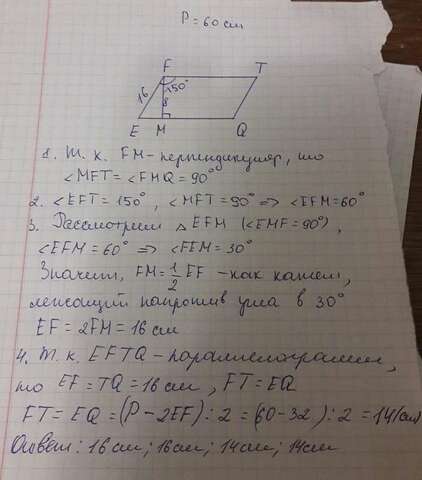 P = 60 см
F T
16 150°
8
E M Q
1. Т. к. FM - перпендикуляр, то
∠MFT = ∠FMQ = 90°
2. ∠EFT = 150°, ∠MFT = 90° => ∠EFM = 60°
3. Рассмотрим △ EFM (∠EMF = 90°),
∠EFM = 60° => ∠FEM = 30°
Значит, FM = 1/2 EF - как катет,
лежащий напротив угла в 30°
EF = 2FM = 16 см
4. Т. к. EFTQ - параллелограмм,
то EF = TQ = 16 см, FT = EQ
FT = EQ = (P - 2EF) : 2 = (60 - 32) : 2 = 14 (см)
Ответ: 16 см; 16 см; 14 см; 14 см